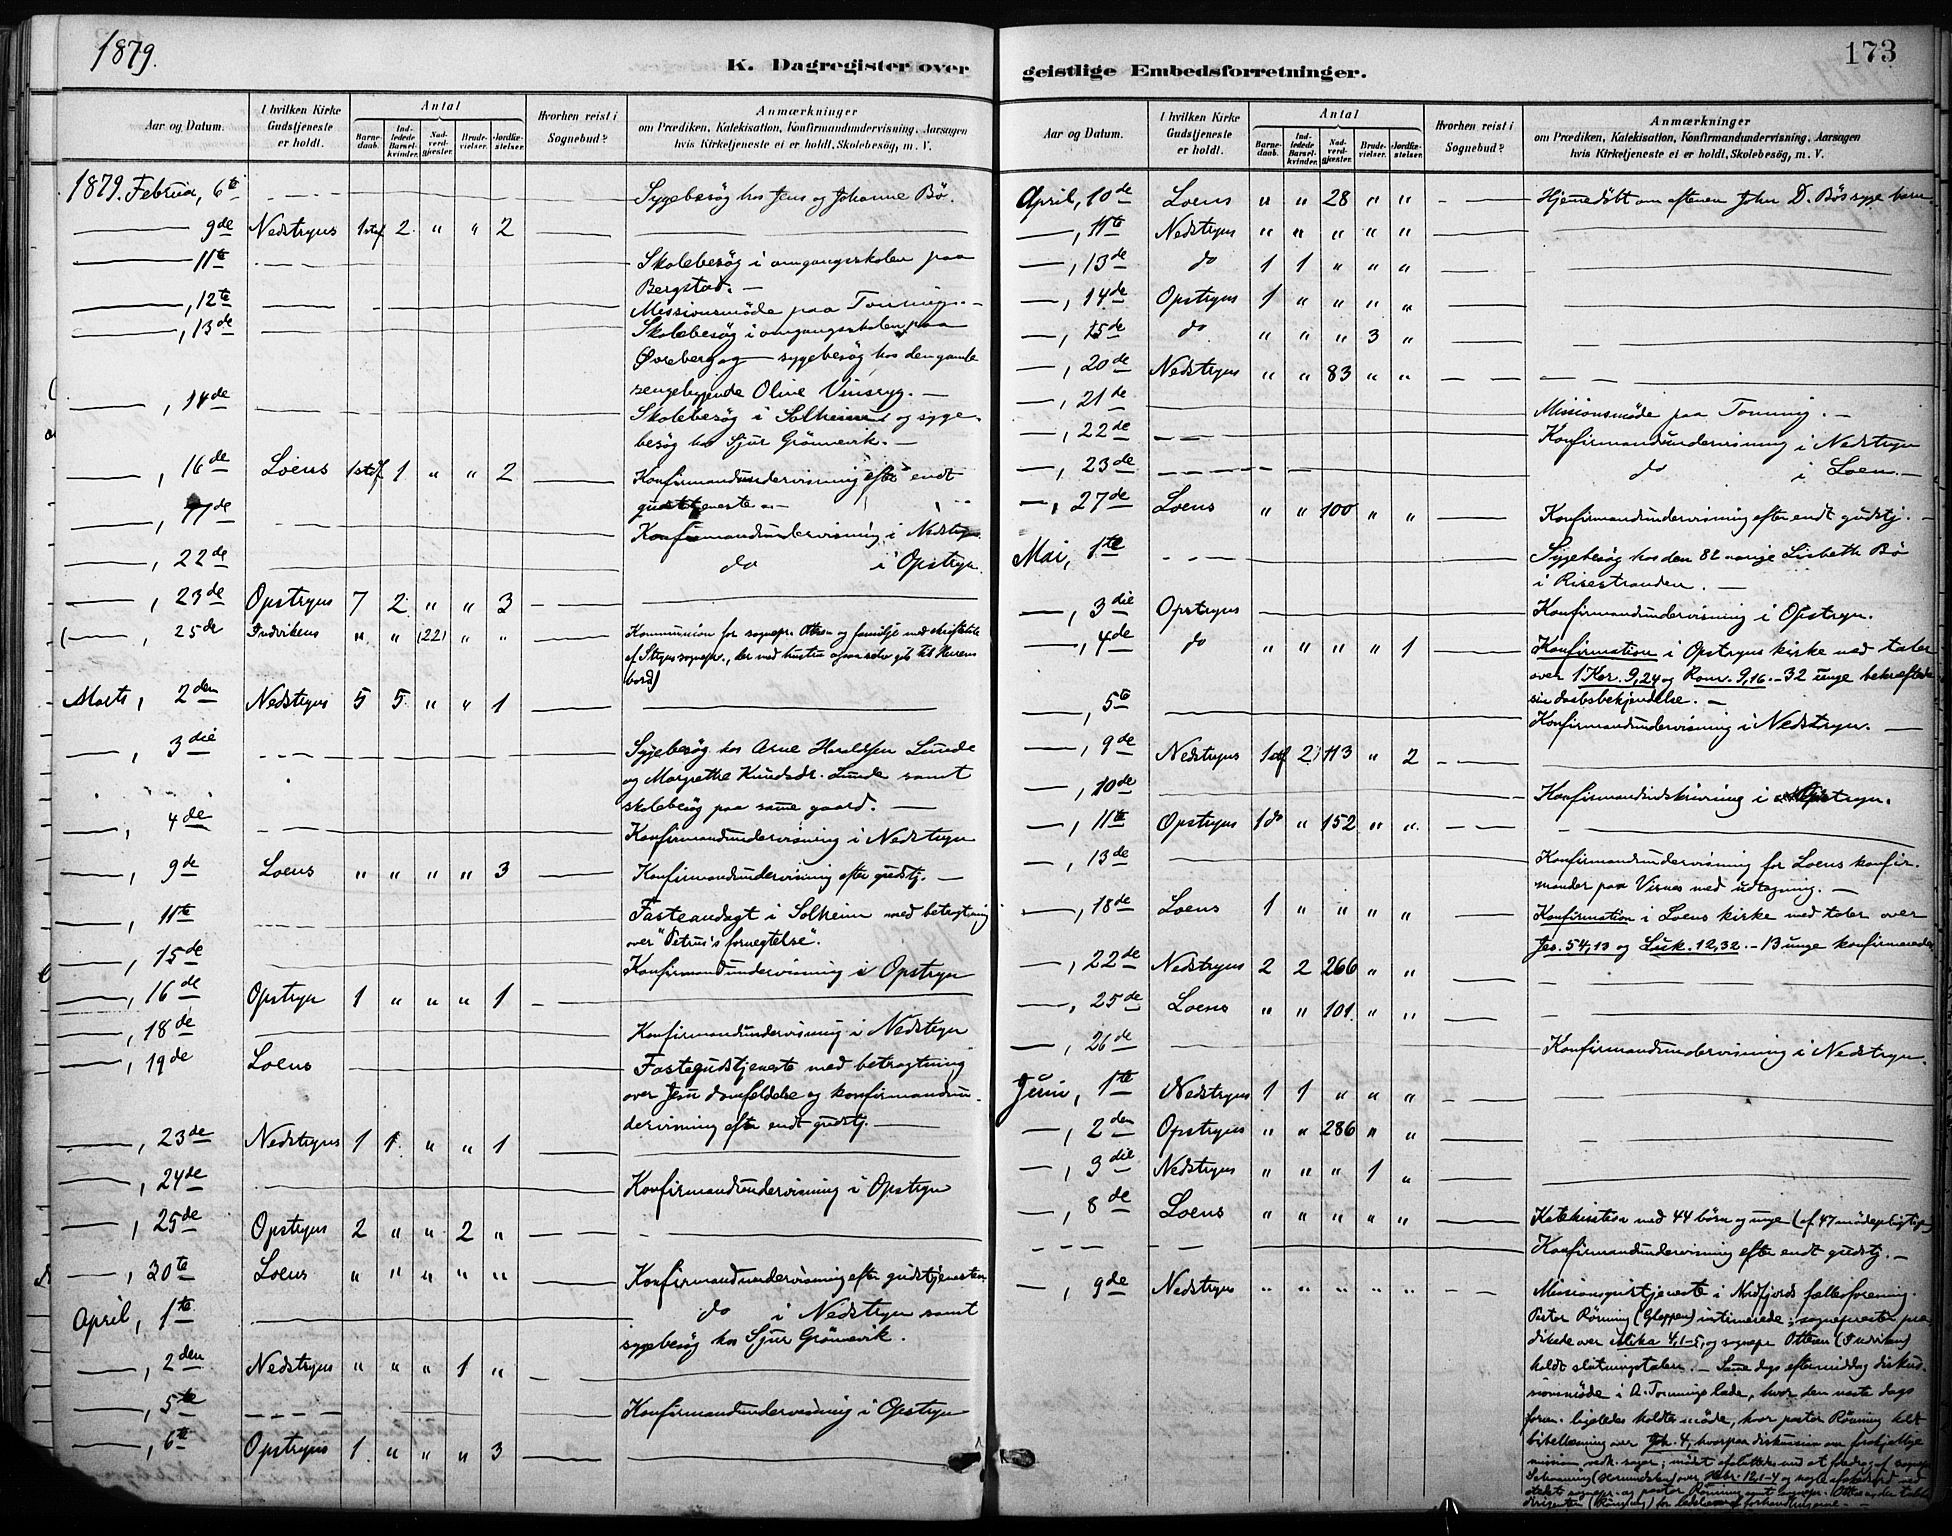 1879.
K. Dagregister over
Aar og Datum. I hvilken Kirke Gudstjeneste er holdt. Antal Barnedaab. Indledede Barselkvinder. Nadverdgjæster. Brudevielser. Jordfæstelser. Hvorhen reist i Sognebud? Anmærkninger om Prædiken, Katekisation, Konfirmandundervisning, Aarsagen hvis Kirketjeneste ei er holdt, Skolebesøg, m. V.
1879. Februar, 6te Sygebesøg hos Jens og Johanne Bø.
9de Nedstryns 1 stdf 2 " " 2
11te Skolebesøg i omgangsskolen paa
Bergstad. –
, 12te Missionsmøde paa Tonning. –
, 13de Skolebesøg i omgangsskolen paa
Øvreberg og sygebesøg hos den gamle
sengeliggende Oline Vinsryg. –
, 14de Skolebesøg i Solheim og syge-
besøg hos Sjur Grønnevik. –
, 16de Loens 1 stdf 1 " " 2 Konfirmandundervisning efter endt
gudstjeneste. –
, 17de Konfirmandundervisning i Nedstryn
, 22de do i Opstryn.
, 23de Opstryns 7 2 " " 3
( , 25de Indvikens " " (22) " " Kommunion for sognepr. Ottesen og familje med skriftetale
af Stryns sognepr., der med hustru ogsaa selv gik til Herrens
bord)
Marts, 2den Nedstryns 5 5 " " 1
, 3die Sygebesøg hos Arne Haraldsen Lunde
og Margrethe Knudsdr. Lunde samt
skolebesøg paa samme gaard. –
, 4de Konfirmandundervisning i Nedstryn
, 9de Loens " " " " 3 Konfirmandundervisning efter gudstj. –
, 11te Fasteandagt i Solheim med betragtning
over "Petrus's fornegtelse".
, 15de Konfirmandundervisning i Opstryn
, 16de Opstryn 1 " " " 1
, 18de Konfirmandundervisning i Nedstryn
, 19de Loens Fastegudstjeneste med betragtning
over Jesu domfældelse og konfirmandun-
dervisning efter endt gudstj.
, 23de Nedstryns 1 1 " " 1
, 24de Konfirmandundervisning i Opstryn
, 25de Opstryns 2 " " 2 "
, 30te Loens " " " " " Konfirmandundervisning efter gudstjenesten
April, 1te do i Nedstryn samt
sygebesøg hos Sjur Grønnevik.
, 2den Nedstryns " " " 1 "
, 5te Konfirmandundervisning i Opstryn
, 6te Opstryns 1 " " " 3
173
geistlige Embedsforretninger.
Aar og Datum. I hvilken Kirke Gudstjeneste er holdt. Antal Barnedaab. Indledede Barselkvinder. Nadverdgjæster. Brudevielser. Jordfæstelser. Hvorhen reist i Sognebud? Anmærkninger om Prædiken, Katekisation, Konfirmandundervisning, Aarsagen hvis Kirketjeneste ei er holdt, Skolebesøg, m. V.
April, 10de Loens " " 28 " " Hjemmedøbt om aftenen John D. Bøs syge barn
, 11te Nedstryns " " " " "
, 13de do 1 1 " " "
, 14de Opstryns 1 " " " "
, 15de do " " " 3 "
, 20de Nedstryns " " 83 " "
, 21de Missionsmøde paa Tonning. –
, 22de Konfirmandundervisning i Nedstryn
, 23de do i Loen. –
, 27de Loens " " 100 " " Konfirmandundervisning efter endt gudstj. –
Mai, 1te Sygebesøg hos den 82 aarige Lisbeth Bø
i Risestranden. –
, 3die Opstryns Konfirmandundervisning i Opstryn.
, 4de do " " " " 1 Konfirmation i Opstryns kirke med taler
over 1 Kor. 9,24 og Rom. 9,16. – 32 unge bekræftede
sin daabsbekjendelse. –
, 5te Konfirmandundervisning i Nedstryn. –
, 9de Nedstryns 1 stdf 2 113 " 2
, 10de Konfirmandindskrivning i Opstryn.
, 11te Opstryns 1 do " 152 " "
, 13de Konfirmandundervisning for Loens konfir-
mander paa Visnes med udtagning. –
, 18de Loens 1 " " " " Konfirmation i Loens kirke med taler over
Jes. 54,13 og Luk. 12,32. – 13 unge konfirmeredes
, 22de Nedstryns 2 2 266 " "
, 25de Loens " " 101 " "
, 26de Konfirmandundervisning i Nedstryn.
Juni, 1te Nedstryns 1 1 " " "
, 2den Opstryns " " 286 " "
, 3die Nedstryns " " " 1 "
, 8de Loens " " " " " Katekisation med 44 børn og unge (af 47 mødepligtige)
Konfirmandundervisning efter endt gudstj. –
, 9de Nedstryns " " " " " Missionsgustjeneste i Nordfjords fællesforening.
Pastor Rønning (Gloppen) intimerede; sognepresten præ-
dikede over Mika 4,1-5, og sognepr. Ottesen (Indviken)
holdt slutningstalen. – Samme dags eftermiddag diskus-
sionsmøde i A. Tonnings lade, hvor den næste dags
form. ligeledes holdtes møde, hvor pastor Rønning holdt
bibellæsning over Joh. 4, hvorpaa diskussion om forskjellige
mission vedk. sager; mødet afsluttedes med et foredrag af sognepr.
over Hebr. 12,1-4 og nogle afskedsord
sognepr. og pastor Rønning samt sognepr. Ottesen
for ledelsen af forhandlingerne. –